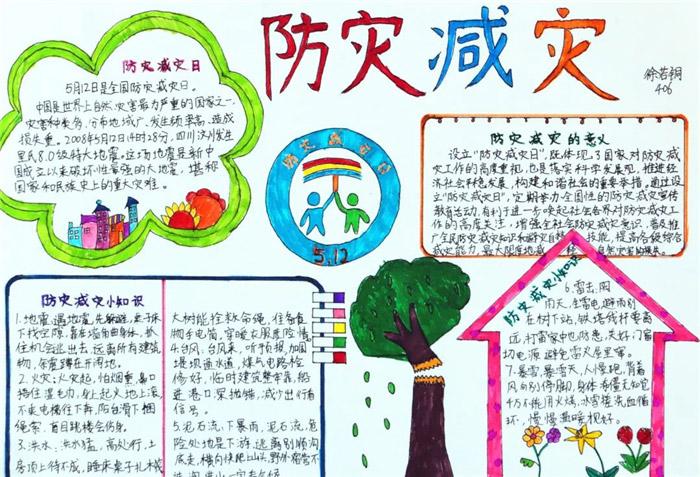 防灾减灾
徐若桐
406
防灾减灾日
5月12日是全国防灾减灾日。
中国是世界上自然灾害最为严重的国家之一,
灾害种类多、分布地域广、发生频率高、造成
损失重。2008年5月12日14时28分,四川汶川发生
里氏8.0级特大地震。这场地震是新中
国成立以来破坏性最强的大地震,堪称
国家和民族史上的重大灾难。
防灾减灾日
5.12
防灾减灾的意义
设立“防灾减灾日”,既体现了国家对防灾减灾
工作的高度重视,也是落实科学发展观,推进经
济社会和谐发展,构建和谐社会的重要举措。通过设
立“防灾减灾日”,定期举办全国性的防灾减灾宣传
教育活动,有利于进一步唤起社会各界对防灾减灾工
作的高度关注,增强全社会防灾减灾意识,普及推
广全民防灾减灾知识和避灾自救技能,提高各级综合
减灾能力,最大限度地减
防灾减灾小知识
1.地震:遇地震,先躲避,桌子床
下找空隙,靠在墙角曲身体,抓
住机会逃出去,远离所有建筑
物,余震蹲在开阔地。
2.火灾:火灾起,怕烟重,鼻口
捂住湿毛巾,身上起火地上滚,
不乘电梯往下奔,阳台滑下捆
绳索,盲目跳楼会伤身。
3.洪水:洪水猛,高处行,土
房顶上待不成,睡床桌子扎木筏
大树能拴救命绳,住备食
物手电筒,穿暖衣服度险情。
4.台风:台风来,听预报,加固
堤坝通水道,煤气电路检
修好,临时建筑整牢靠,船
进港口深抛锚,减少出行看
信号。
5.泥石流:下暴雨,泥石流,危
险处地是下游,逃离别顺沟
底走,横向快爬上山头,野外宿营不
防灾减灾小知识
6.雷击:阴
雨天,生雷电,避雨别
在树下站,铁塔线杆要离
远,打雷家中也防患,关好门窗
切电源,避免雷火屋里窜。
7.暴雪:暴雪天,人慢跑,背着
风向别停脚,身体冻僵无知觉
千万不能用火烤,冰雪搓洗血循
环,慢慢温暖才好。